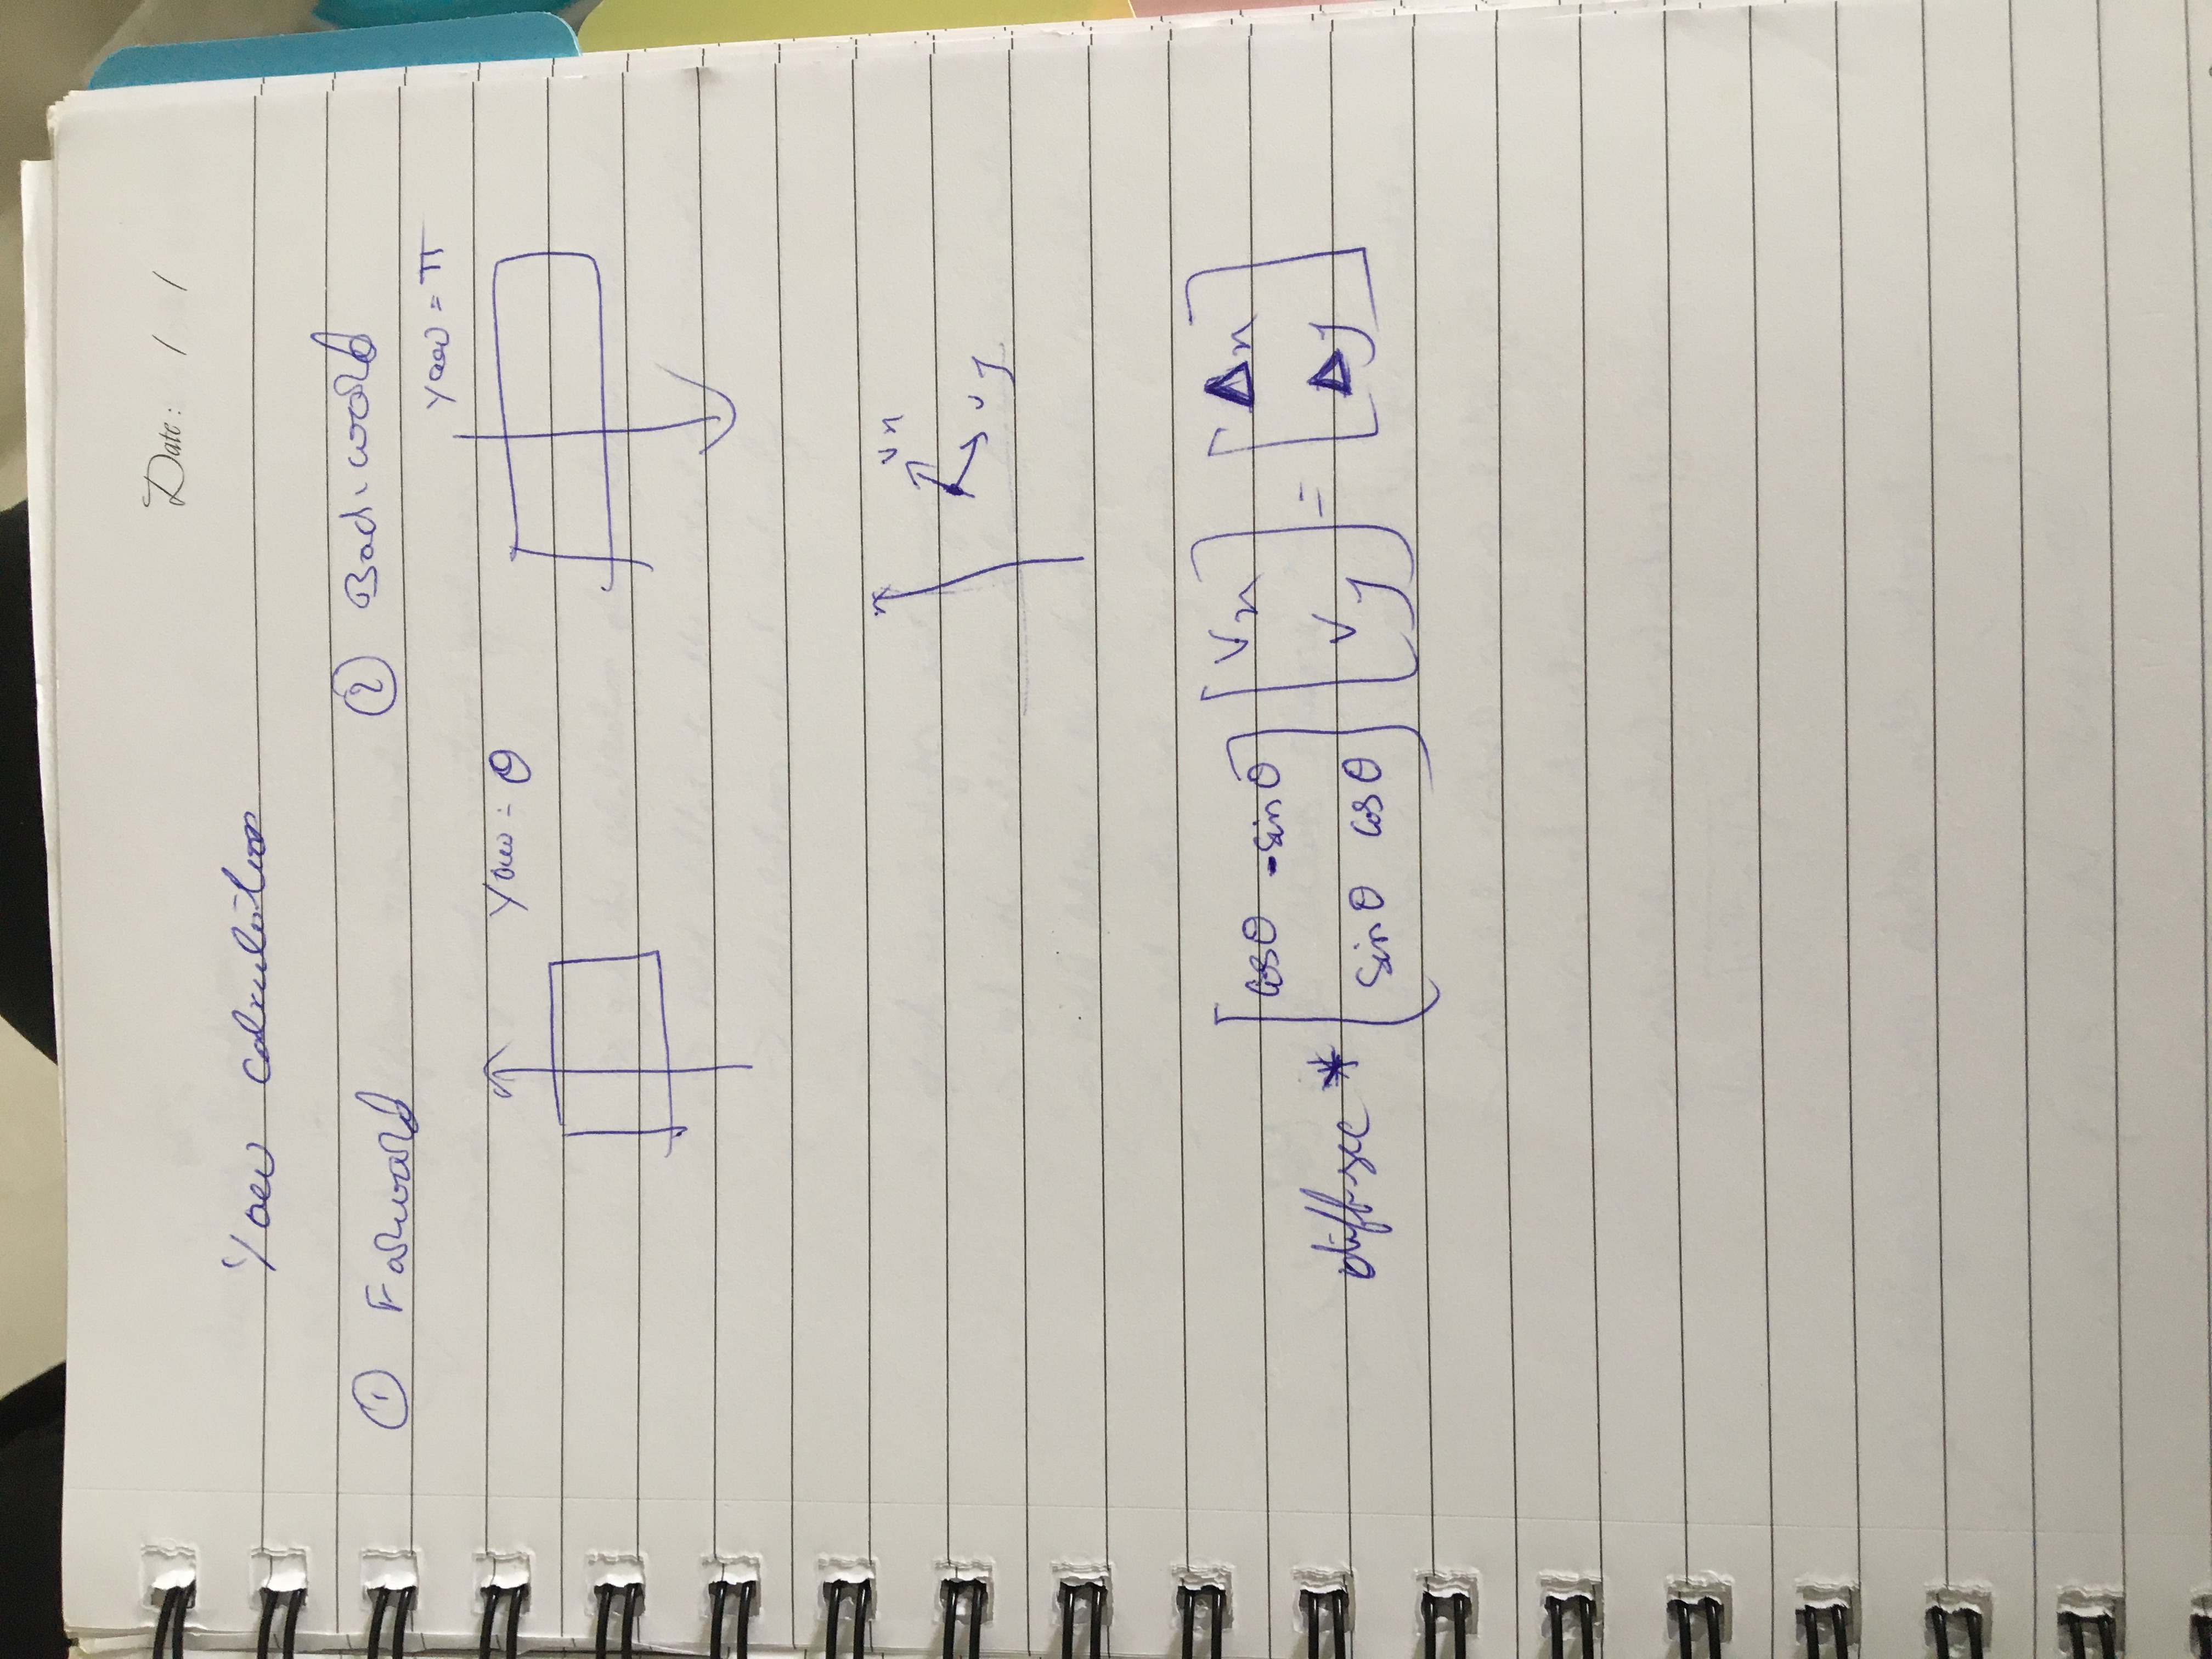 Date: / /
Yaw calculation
① Forward
② Backward
yaw = π
Yaw = θ
Vx
Vy
diffsec * [cosθ -sinθ] [Vx] = [Δx]
[sinθ cosθ] [Vy] [Δy]